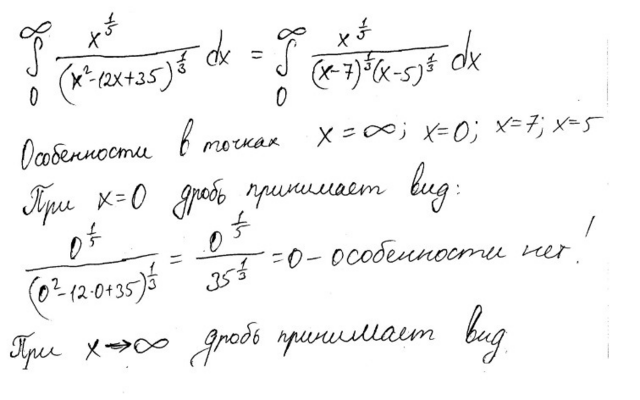 ∫₀^∞ x^{1/5}/(x²-12x+35)^{1/3} dx = ∫₀^∞ x^{1/5}/((x-7)^{1/3}(x-5)^{1/3}) dx
Особенности в точках x=∞; x=0; x=7; x=5
При x=0 дробь принимает вид:
0^{1/5}/(0²-12·0+35)^{1/3} = 0^{1/5}/35^{1/3} = 0 – особенности нет!
При x→∞ дробь принимает вид